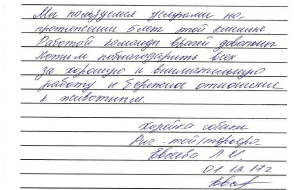 Мы пользуемся услугами на
протяжении 5 лет этой клиники
Работой команды врачей довольны.
Хотим поблагодарить всех
за хорошую и внимательную
работу и бережное отношение
к животным.
Хозяйка собаки
той/терьера
01.12.17г